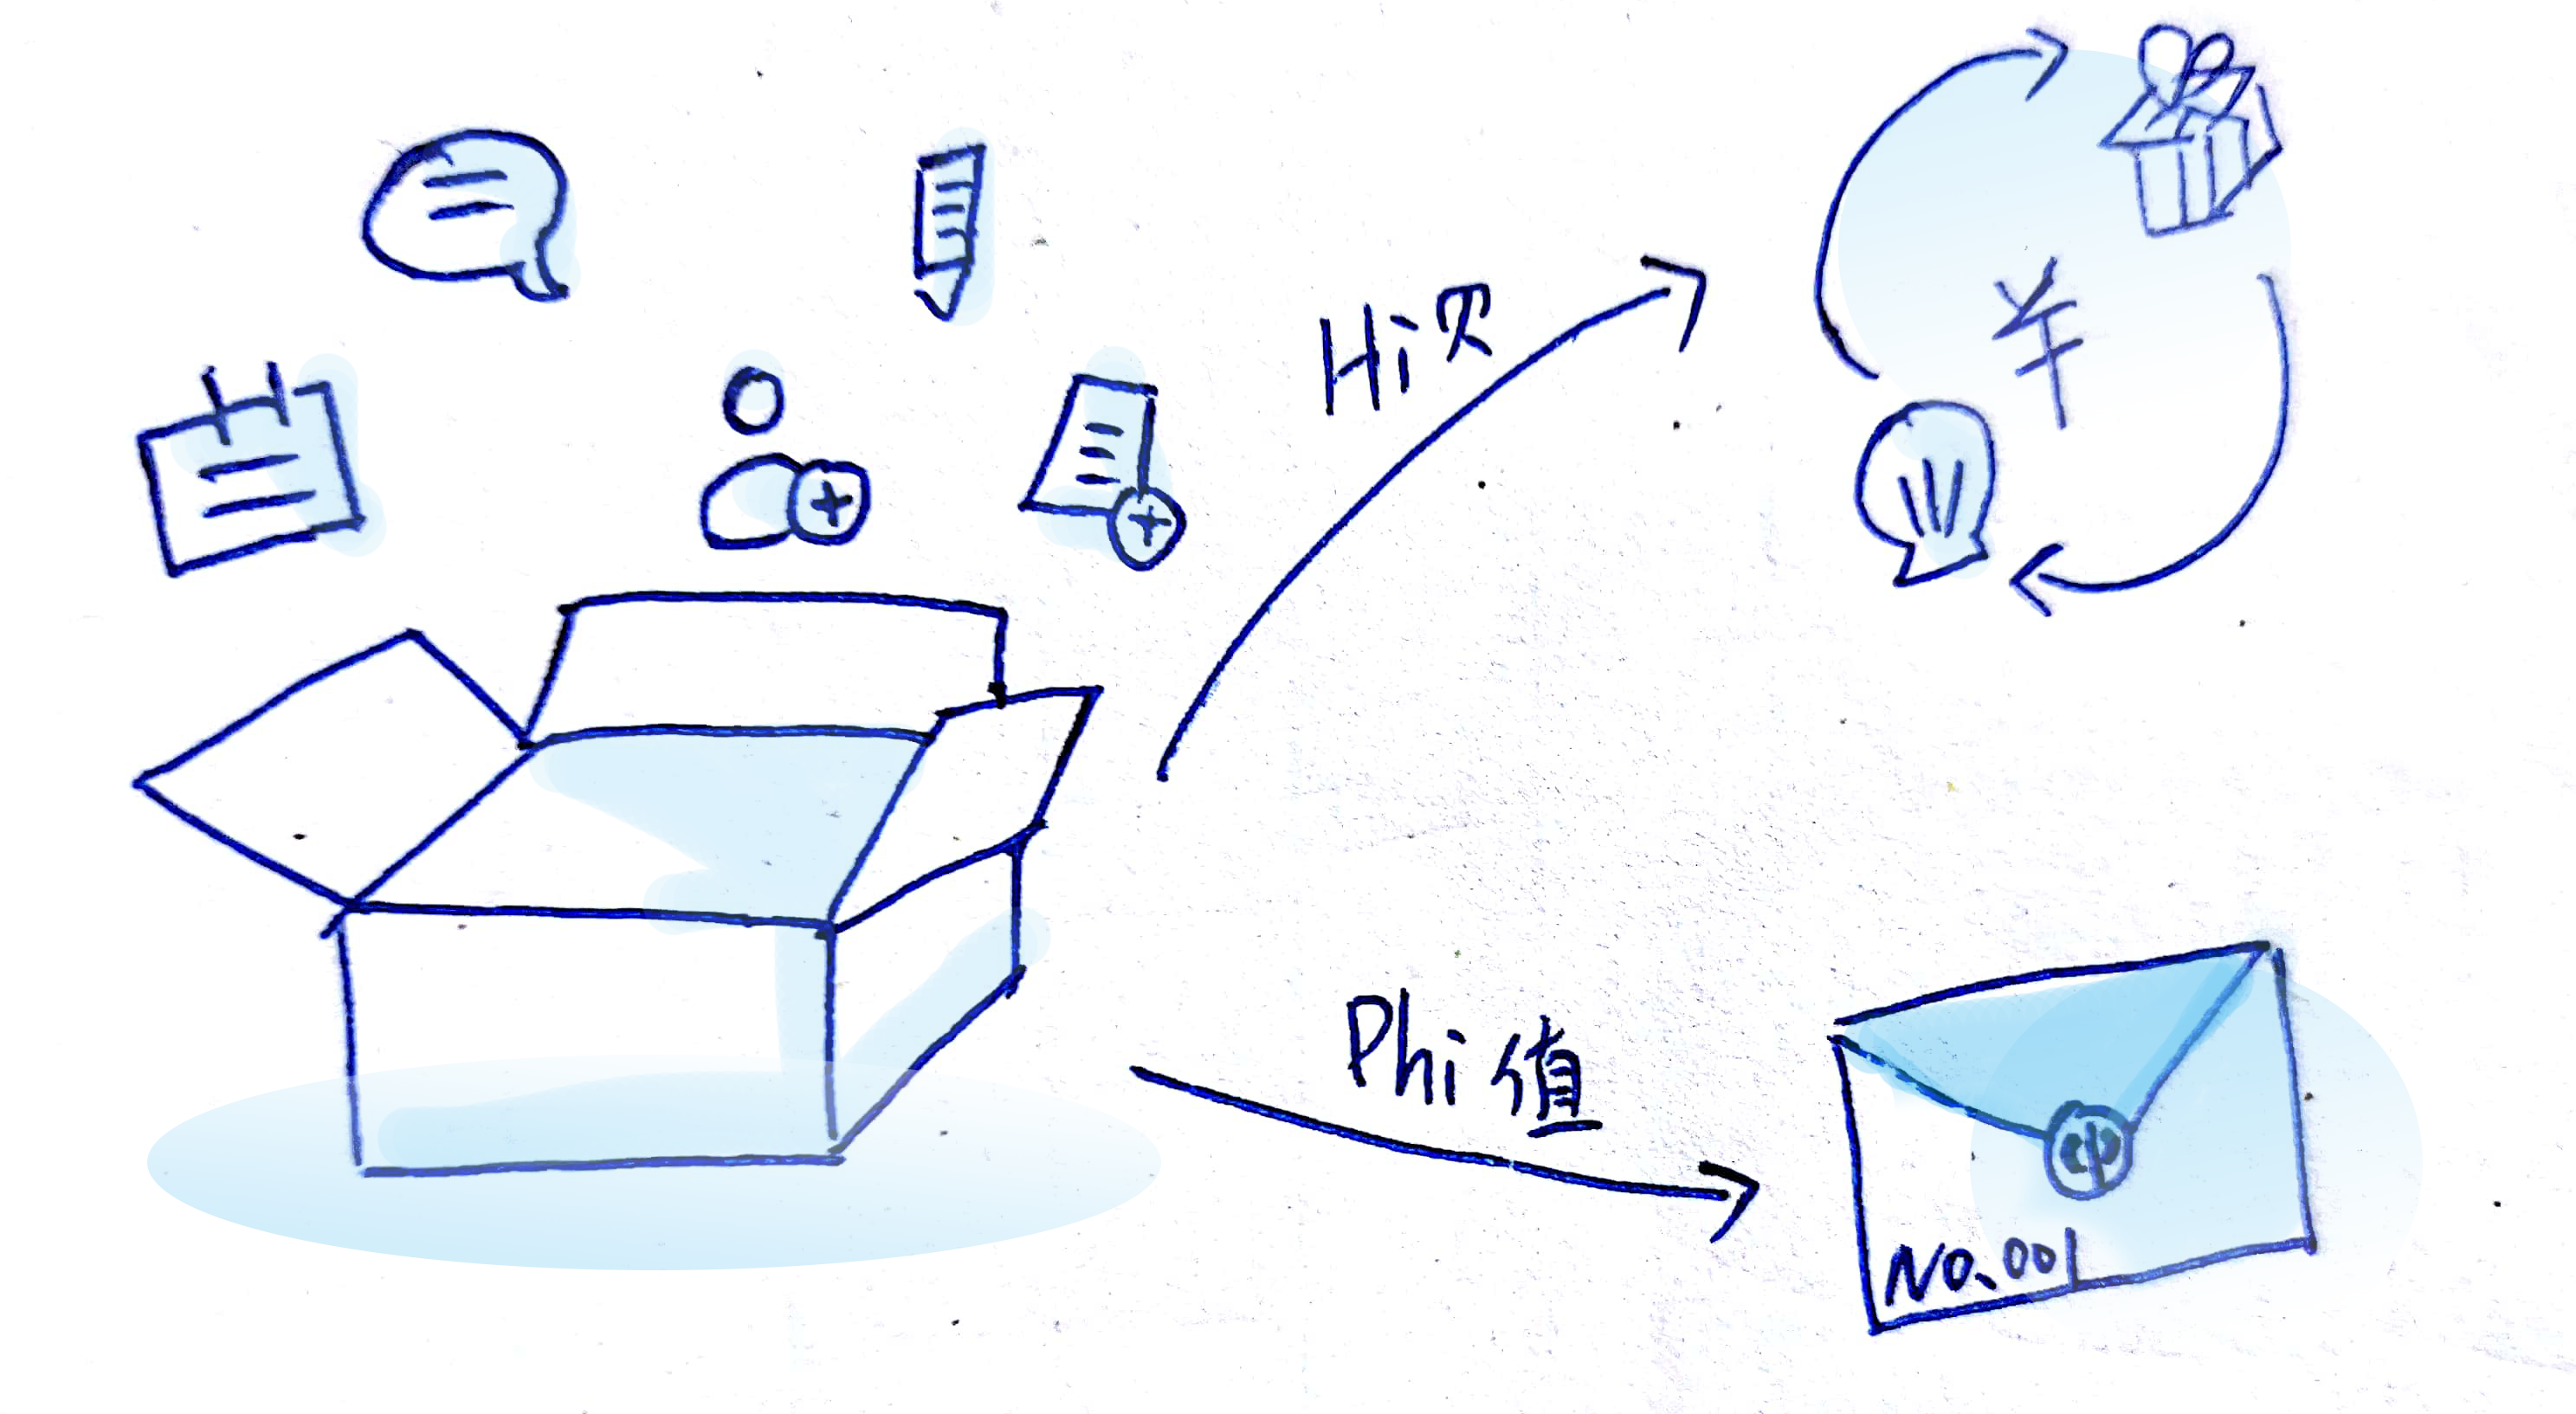 Hi贝
¥
Phi值
Φ
No.001